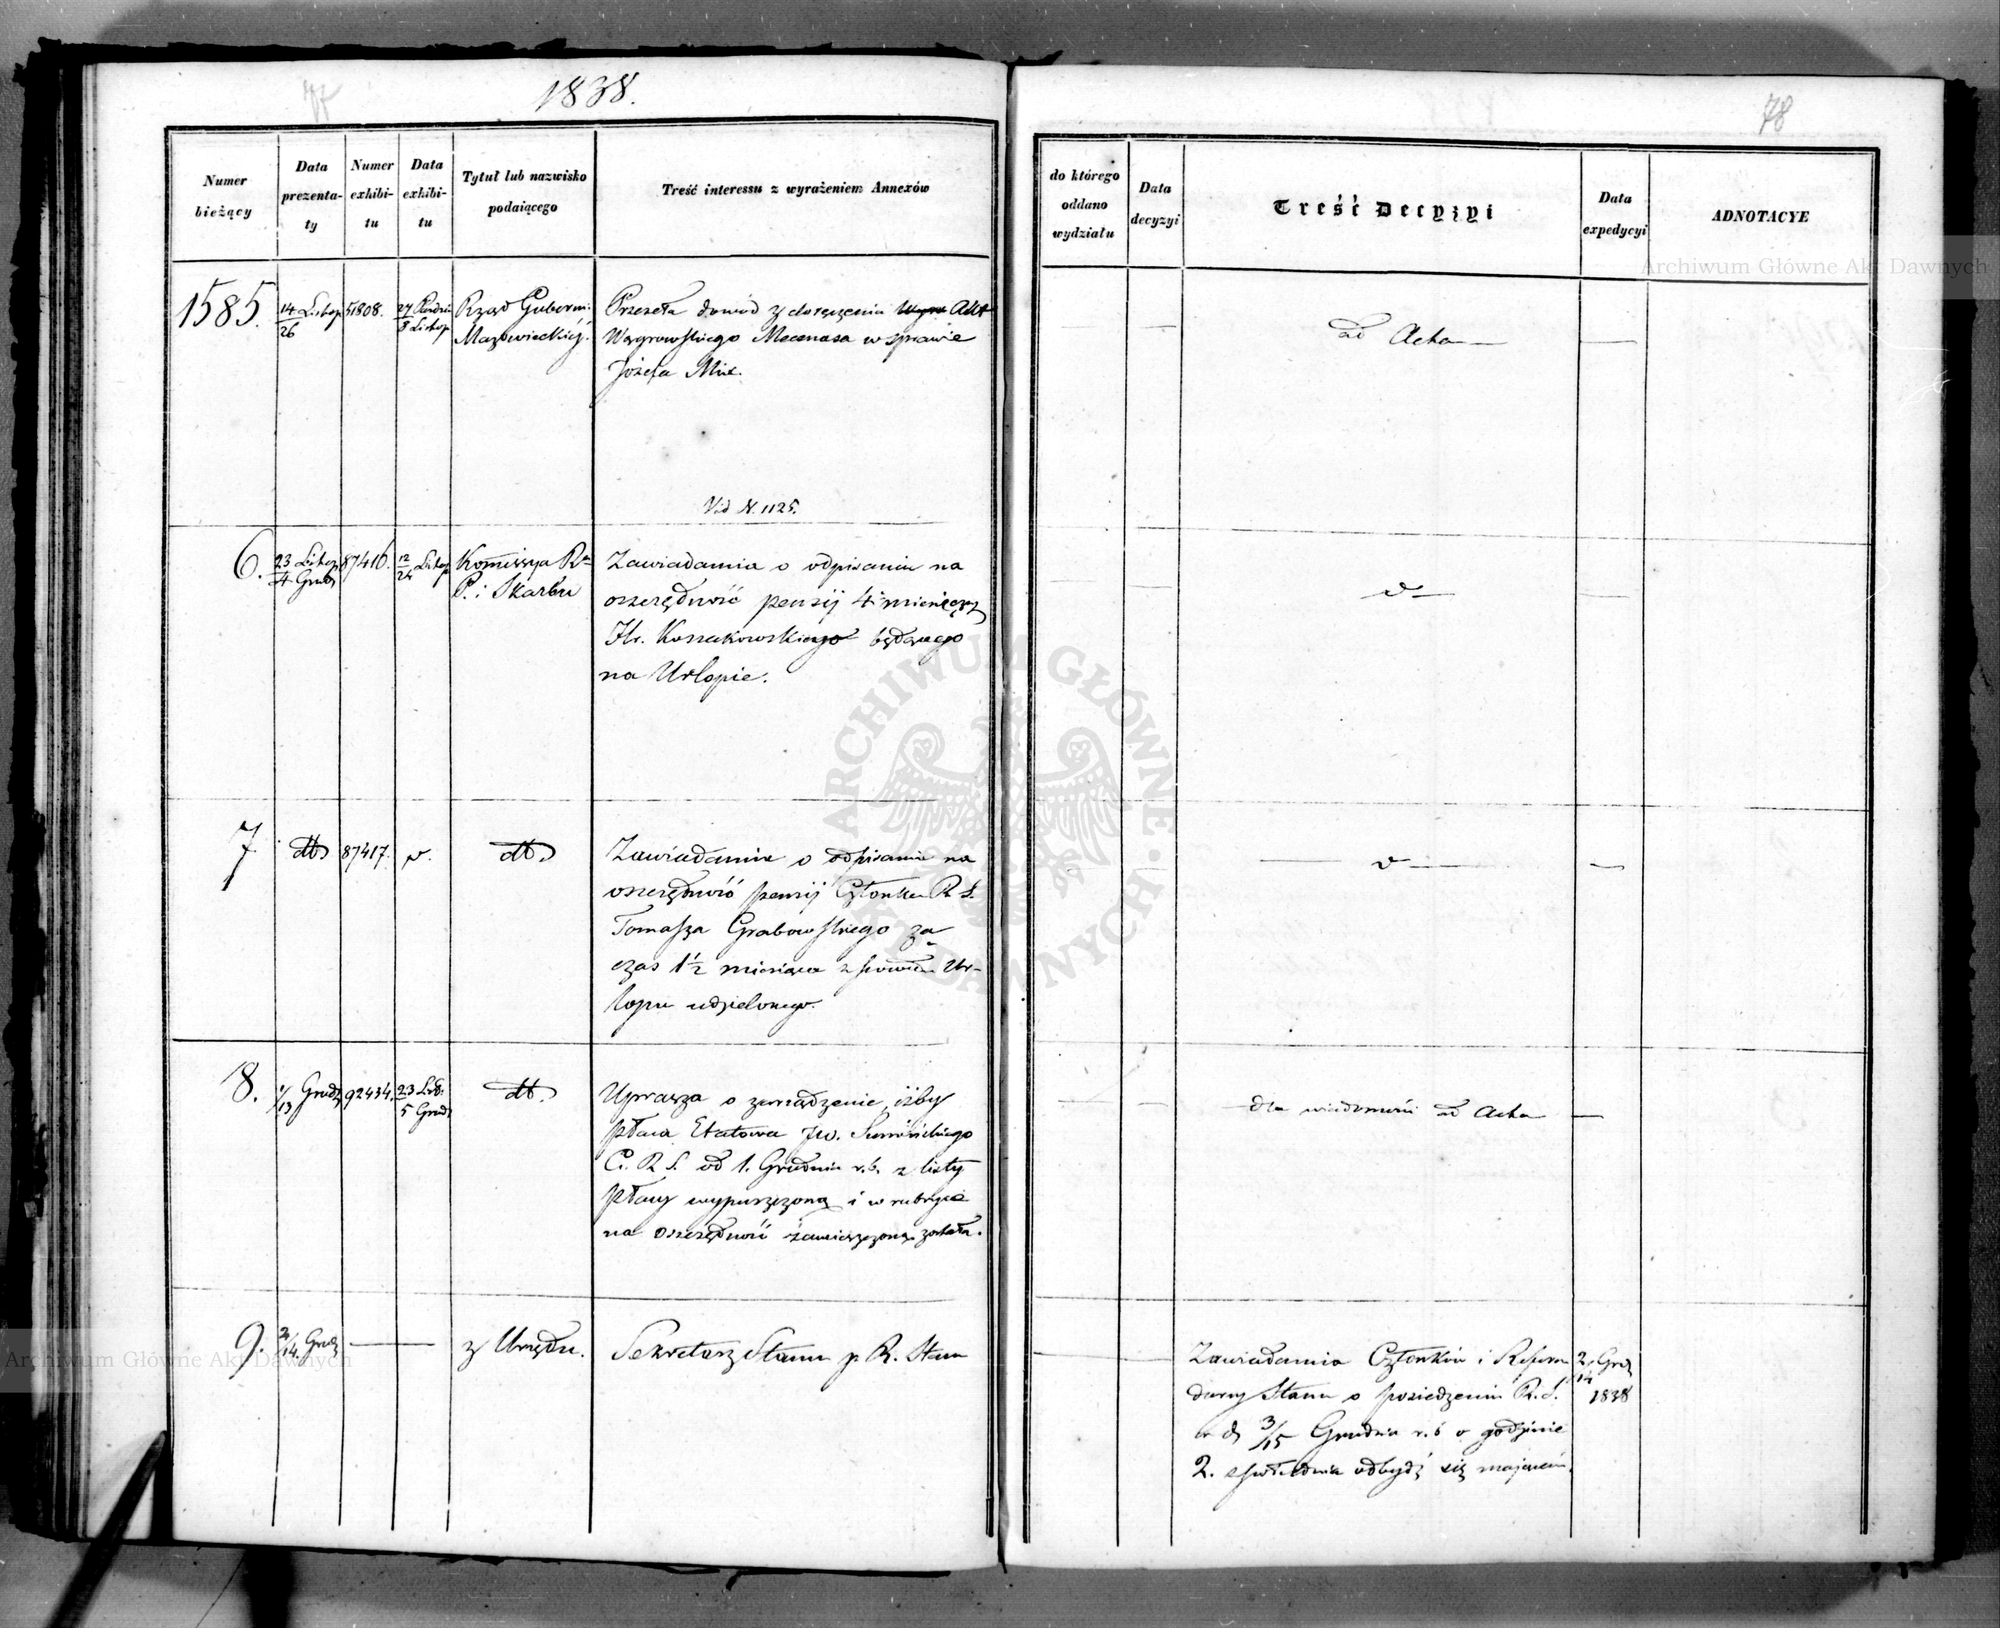 77
1838.
78
Numer bieżący
Data prezenta-ty
Numer exhibi-tu
Data exhibi-tu
Tytuł lub nazwisko podaiącego
Treść interessu z wyrażeniem Annexów
do którego oddano wydziału
Data decyzyi
Treść Decyzyi
Data expedycyi
ADNOTACYE
1585.
14/26 Listop
51808.
27 Paździ
8 Listop
Rząd Guberni:
Mazowieckiéj.
Przeseła dowód z doręczenia
Węgrowskiego Mecenasa w sprawie
Józefa Mix.
Vid N. 1125.
ad Acta
6.
23 Listop
4 Grud
87416.
12/24 Listop
Komissya R
P. i Skarbu
Zawiadamia o odpisaniu na
oszczędność pensij 4 miesięczn
Hr. Kossakowskiego będącego
na Urlopie.
7
dto
87417.
dto.
Zawiadamia o odpisaniu na
oszczędność pensij Członka R. S.
Tomasza Grabowskiego za
czas 1½ miesiąca z powodu Ur-
lopu udzielonego.
8.
1/13 Grudz
92434.
23 List.
5 Grud
dto.
Uprasza o zarządzenie, iżby
płaca Etatowa JW.
C. R. S. od 1. Grudnia r. b. z listy
płacy wypuszczoną i w rubryce
na oszczędność zamieszczoną została.
dla wiadomości ad Acta
9.
2/14. Grudz
z Urzędu.
Sekretarz Stanu p. R. Stanu
Zawiadamia Członków i Referen
darzy Stanu o posiedzeniu R. S.
w d. 3/15 Grudnia r. b o godzinie
2. z południa odbydź się mającém.
2/14 Grud
1838
Archiwum Główne Akt Dawnych
Archiwum Główne Akt Dawnych
ARCHIWUM GŁÓWNE AKT DAWNYCH